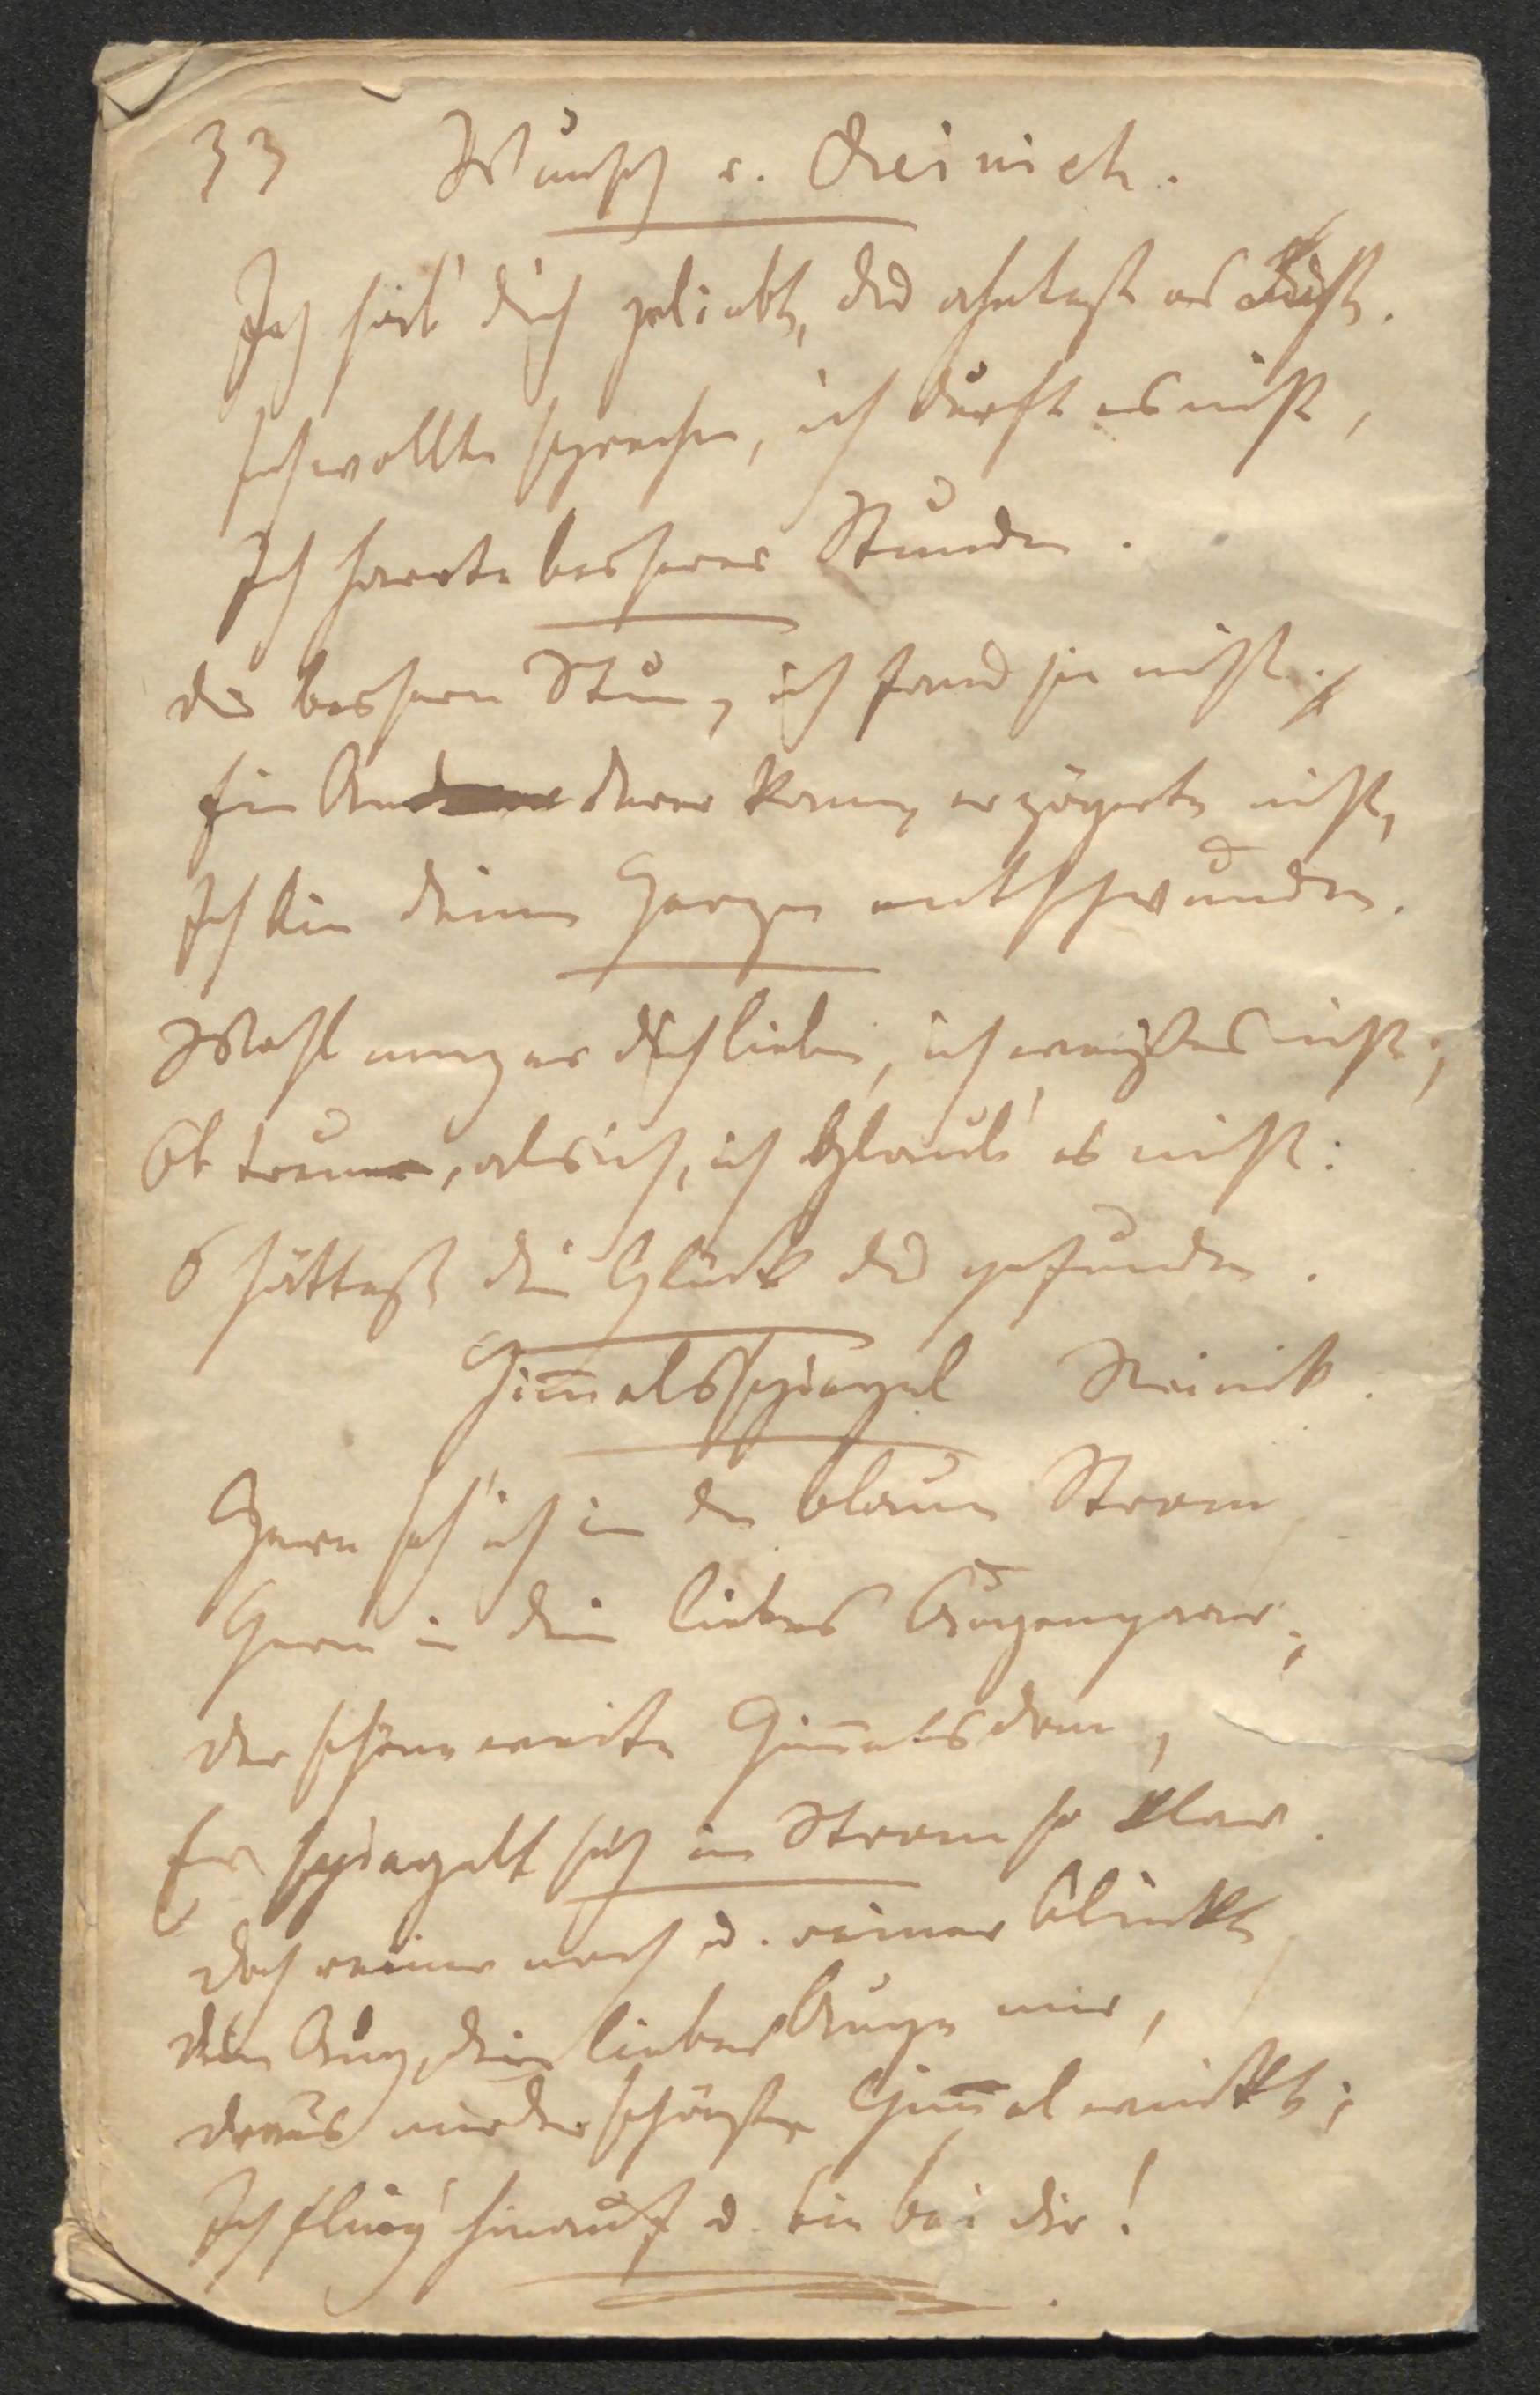 33 Wunsch v. Reinick.
Ich hab' dich geliebt, du ahntest es nicht.
Ich wollte sprechen, ich durft es nicht,
Ich harrte besserer Stunden.
Die bessern Stun, ich fand sie nicht.
Ein Anderer kam, er zögerte nicht,
Ich bin deinem Herzen entschwunden.
Wohl mag er dich lieben, ich weiß es nicht;
Ob treuer, als ich, ich glaub' es nicht:
O hättest dein Glück du gefunden.
Him̄elsspiegel Reinick.
Gern seh' ich in den blauen Strom
Gern in dein liebes Augenpaar;
Der schöne weite Him̄elsdom,
Er spiegelt sich im Strom so klar.
Doch reiner noch u. reiner blickt
Dein Aug, dein liebes Auge mir,
Draus mir der schönste Him̄el winkt;
Ich flieg' hinauf u. bin bei dir!